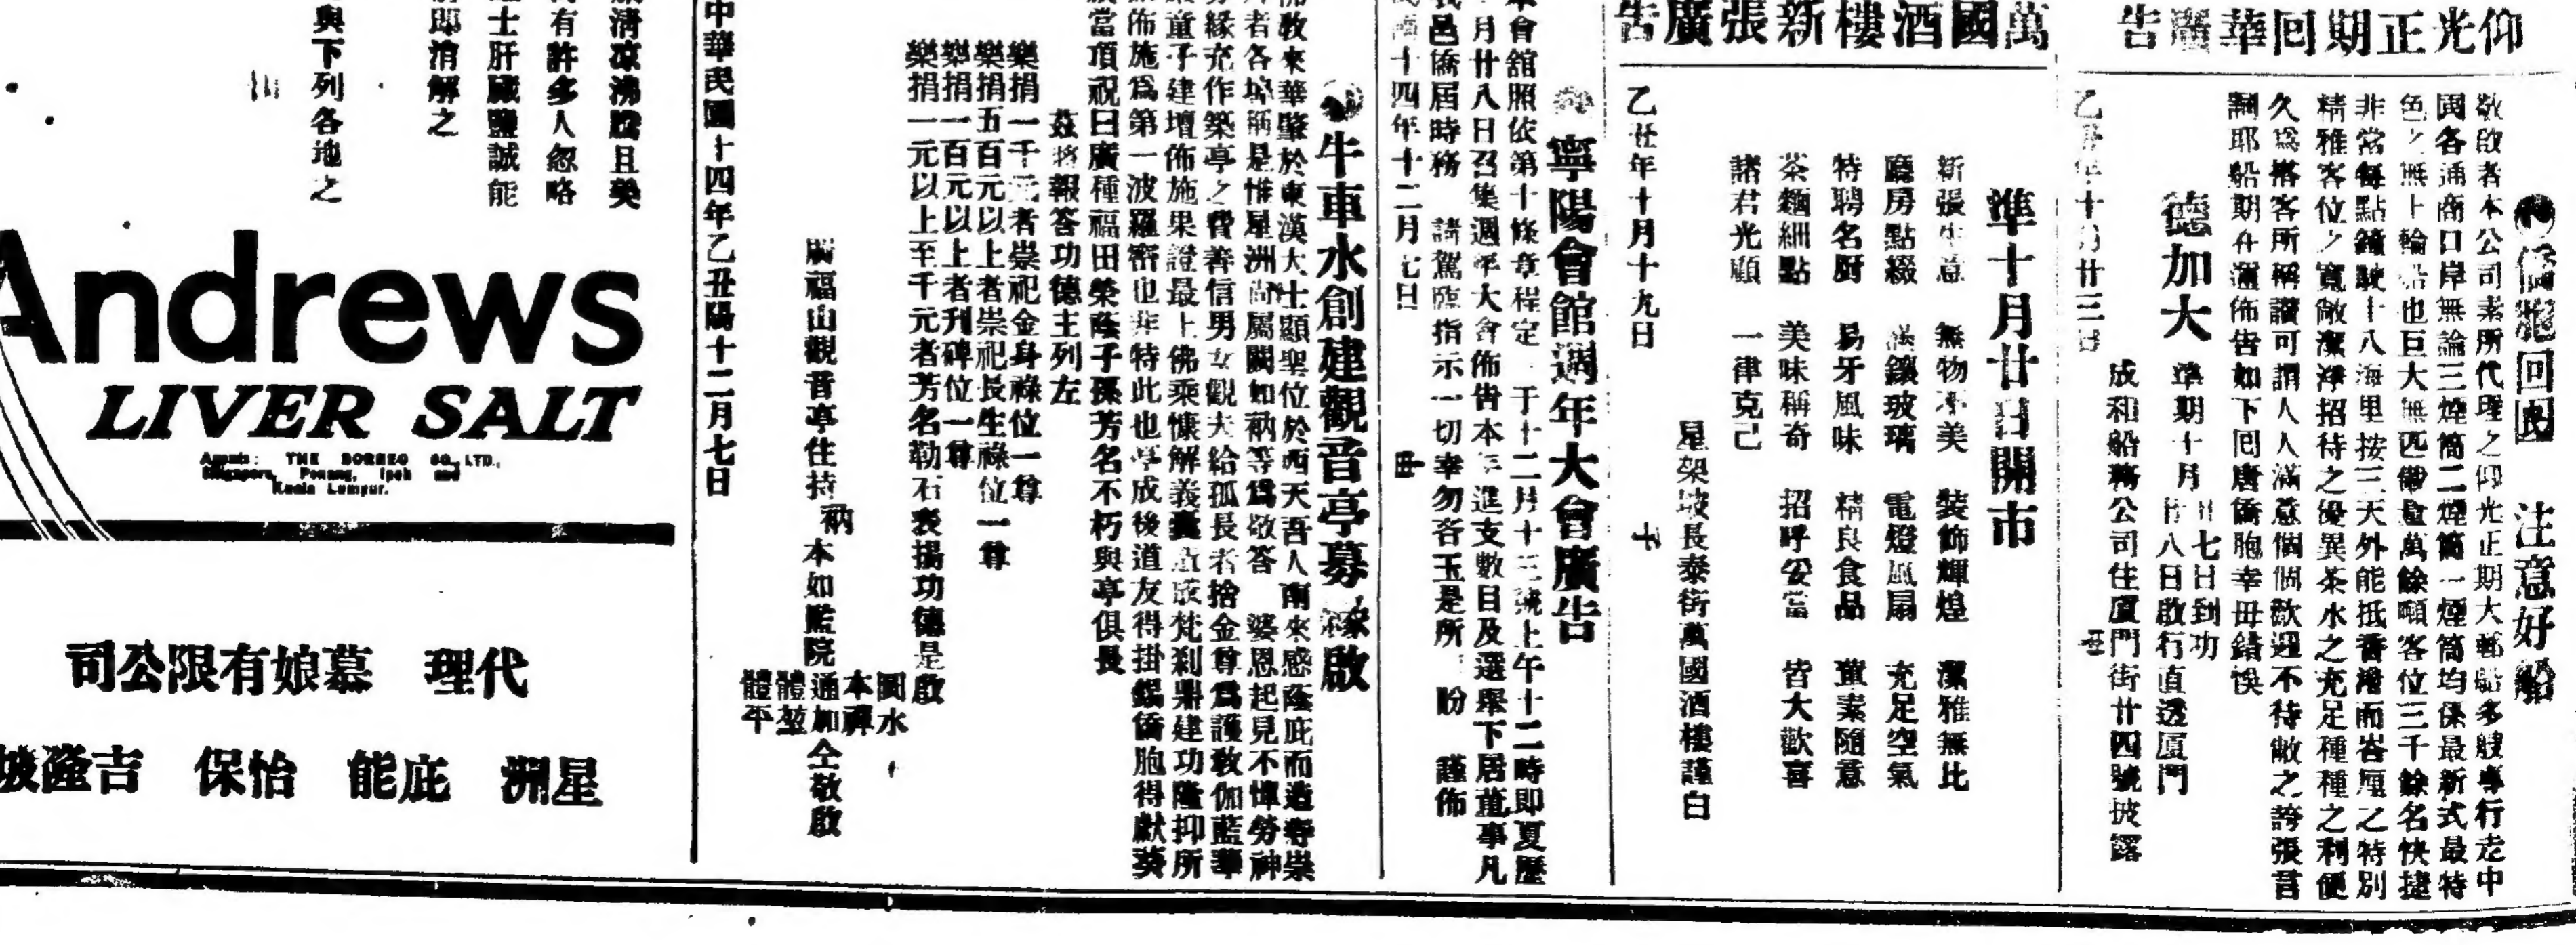 仰光正期回華廣告
僑胞回國 注意好船
敬啟者本公司素所代理之仰光正期大郵船多艘專行走中
國各通商口岸無論三煙筒二煙筒一煙筒均係最新式最特
色之無上輪船也巨大無匹儎量萬餘噸客位三千餘名快捷
非常每點鐘駛十八海里按三天外能抵香港而客區之特別
精雅客位之寬敞潔淨招待之優異茶水之充足種種之利便
久為搭客所稱讚可謂人人滿意個個歡迎不待敝之誇張言
耶船期在邇佈告如下回唐僑胞幸毋錯悞
德加大 準期十月 廿七日到功
廿八日啟行直透厦門
成和船務公司住厦門街廿四號披露
乙丑年十月廿三日
萬國酒樓新張廣告
準十月廿日開市
新張生意 無物不美 裝飾輝煌 潔雅無比
廳房點綴 鑲玻璃 電燈風扇 充足空氣
特聘名厨 易牙風味 精良食品 葷素隨意
茶麵細點 美味稱奇 招呼妥當 皆大歡喜
諸君光顧 一律克己
星架坡長泰街萬國酒樓謹白
乙丑年十月十九日
寧陽會館週年大會廣告
會舘照依第十條章程定于十二月十三號上午十二時即夏歷
月廿八日召集週年大會佈告本年進支數目及選舉下居董事凡
邑僑屆時務 請駕臨指示一切幸勿吝玉是所 盼 謹佈
十四年十二月七日
牛車水創建觀音亭募緣啟
佛教來華肇於東漢大士顯聖位於西天吾人南來感蔭庇而造寺崇
者各埠稱是惟星洲尚屬闕如衲等為敬答 婆恩起見不憚勞神
緣充作築亭之費善信男女觀夫給孤長者捨金尊為護教伽藍華
童子建壇佈施果證最上佛乘慷解義囊直成梵刹鼎建功隆抑所
佈施為第一波羅密也非特此也亭成後道友得掛錫僑胞得獻葵
當頂祝曰廣種福田榮蔭子孫芳名不朽與亭俱長
茲將報答功德主列左
樂捐一千元者崇祀金身祿位一尊
樂捐五百元以上者崇祀長生祿位一尊
樂捐一百元以上者刋碑位一尊
樂捐一元以上至千元者芳名勒石表揚功德是啟
廣福山觀音亭住持 衲 本如監院 通加仝敬啟
圓水
本禪
體堃
體平
中華民國十四年乙丑陽十二月七日
清凉沸騰且美
有許多人忽略
士肝臟鹽誠能
即消解之
與下列各地之
Andrews
LIVER SALT
Agents: THE BORNEO CO., LTD.,
Singapore, Penang, Ipoh and
Kuala Lumpur.
代理 慕娘有限公司
星洲 庇能 怡保 吉隆坡